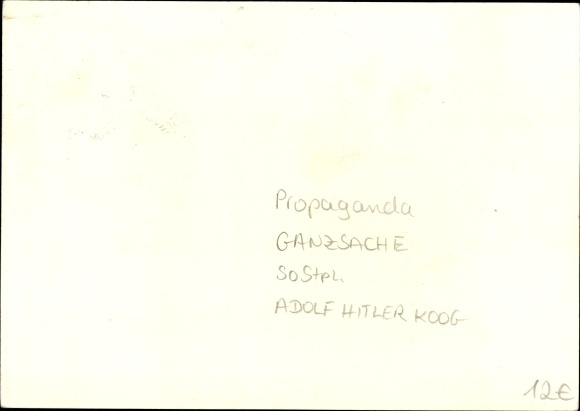 Propaganda
GANZSACHE
SOStpl.
ADOLF HITLER KOOG
12€